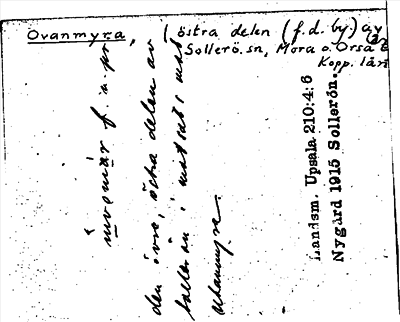 Ovanmyra, (östra delen (f.d. by) av
Sollerö. sn, Mora o. Orsa
Kopp. län
f. n. pr
den övre, östra delen av
Sollerön i motsats mot
Utanmyra.
Landsm. Upsala 210:4:6
Nygård 1915 Sollerön.